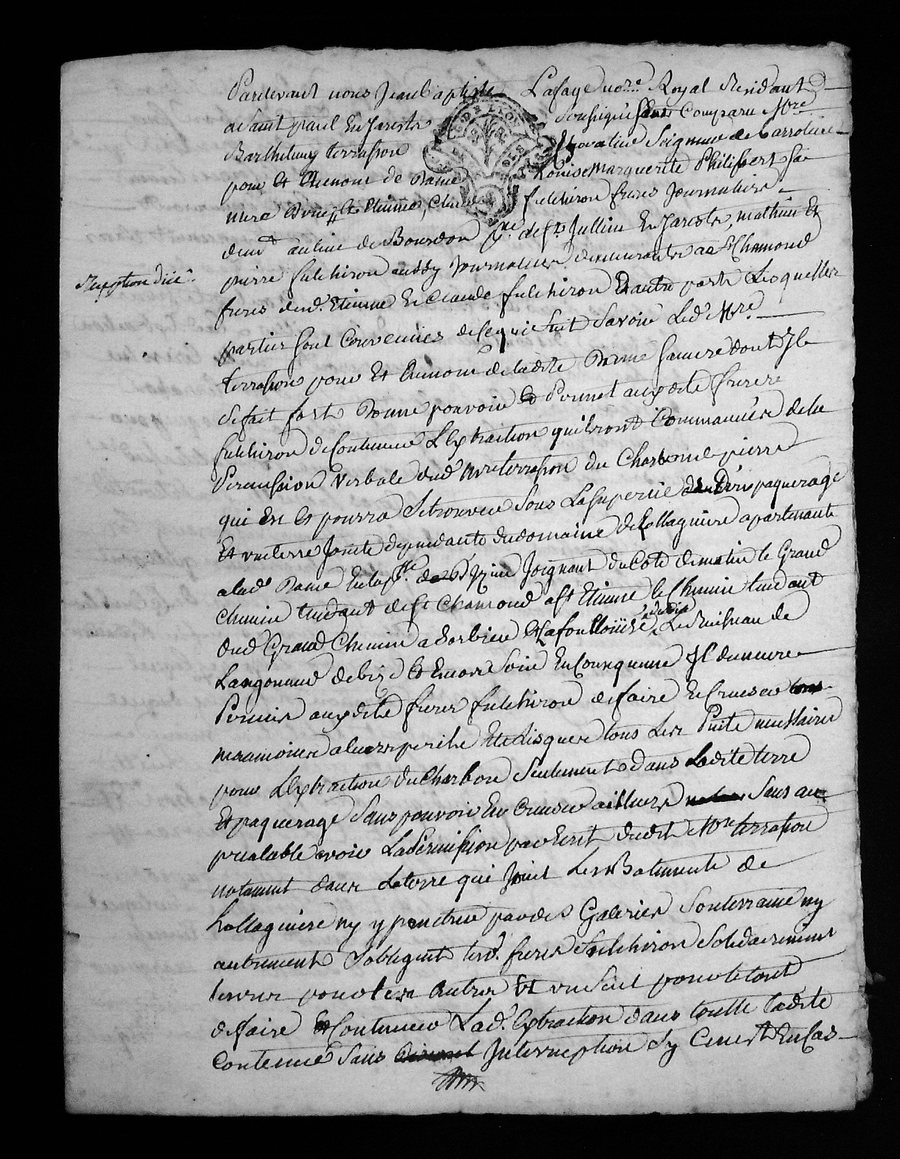 Pardevant nous Jean Baptiste Lafage no.re Royal Residant
a Saint paul En Jarests Soussigné Comparu M.re
Barthelmy terrasson avocat Seigneur de
pour Et Aunom de Dame Louise Marguerite Philibert Sa
mere Etienne, Claude fulchiron freres Journaliers
demt au lieu de Bourdon p.sse de St Jullien En Jarests, mathieu Et
pierre fulchiron aussy Journaliers demeurants a St Chamond
Exploition d'ice
freres dud. Etienne Et Claude fulchiron Dautre part Lesquelles
parties Sont Convenues de cequi Suit Savoir Led. M.re
terrasson pour Et Aunom de ladite Dame Sa mere dont Il
Se fait fort Donne pouvoir Et Permet auxdits freres
fulchiron de Continuer L'Extraction quils ont Commancée de la
Permission Verbale dud. M.re terrasson du Charbon de pierre
qui Est Et pourra Setrouver Sous La Superficie D'un paquerage
Et une terre Joints dependants du domaine de Lollagniere apartenants
a lad. Dame En la p.sse d'Izieu Joignant du Coté de matin le Grand
Chemin tendant de St Chamond a St Etienne le Chemin tendant
dud Grand Chemin a Sorbier Et Lafouillouse de Soir Le Ruisseau de
Langonand de bize Et Encore Soir En Consequence Il demeure
Permis auxdits freres fulchiron de faire Et Creuser
neanmoins a leurs perils Et Risques tous Les Puits necessaires
pour L'Extraction du Charbon Seulement dans Ladite terre
Et paquerage Sans pouvoir En Creuser ailleurs Sans au
prealable avoir La Permission par Ecrit dudit M.re terrasson
notament dans La terre qui Joint Les Batiments de
Lollagniere ny y penetrer par des Galeries Souterraine ny
autrement S'obligent lesd. freres fulchiron Solidairement
les uns pour les Autres Et un Seul pour le tout
de faire Et Continuer Lad. Extraction dans toutte Ladite
Contenue Sans Interruption Sy Ce nest En Cas